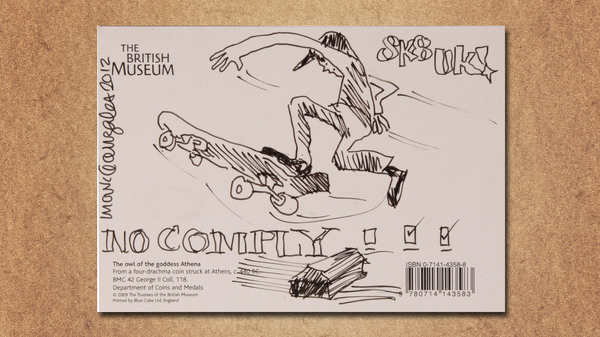 THE
BRITISH
MUSEUM
SK8 UK!
2012
NO COMPLY
The owl of the goddess Athena
From a four-drachma coin struck at Athens, c.440 BC.
BMC 42 George II Coll. 118.
Department of Coins and Medals
© 2005 The Trustees of the British Museum
Printed by Blue Cube Ltd, England
ISBN 0-7141-4358-8
9 780714 143583